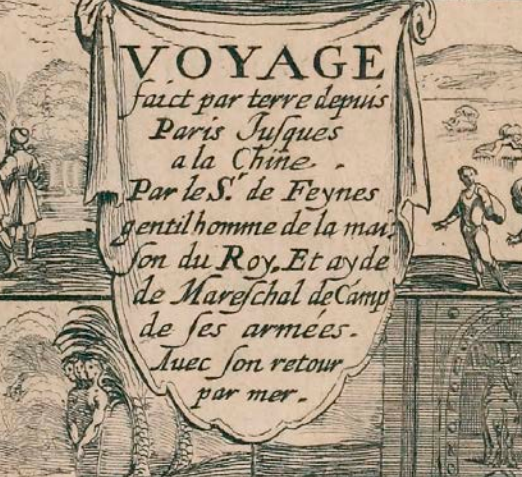 VOYAGE
faict par terre depuis
Paris Jusques
a la Chine.
Par le S.r de Feynes
gentilhomme de la mai
son du Roy, Et ayde
de Mareschal de Camp
de ses armées.
Auec son retour
par mer.